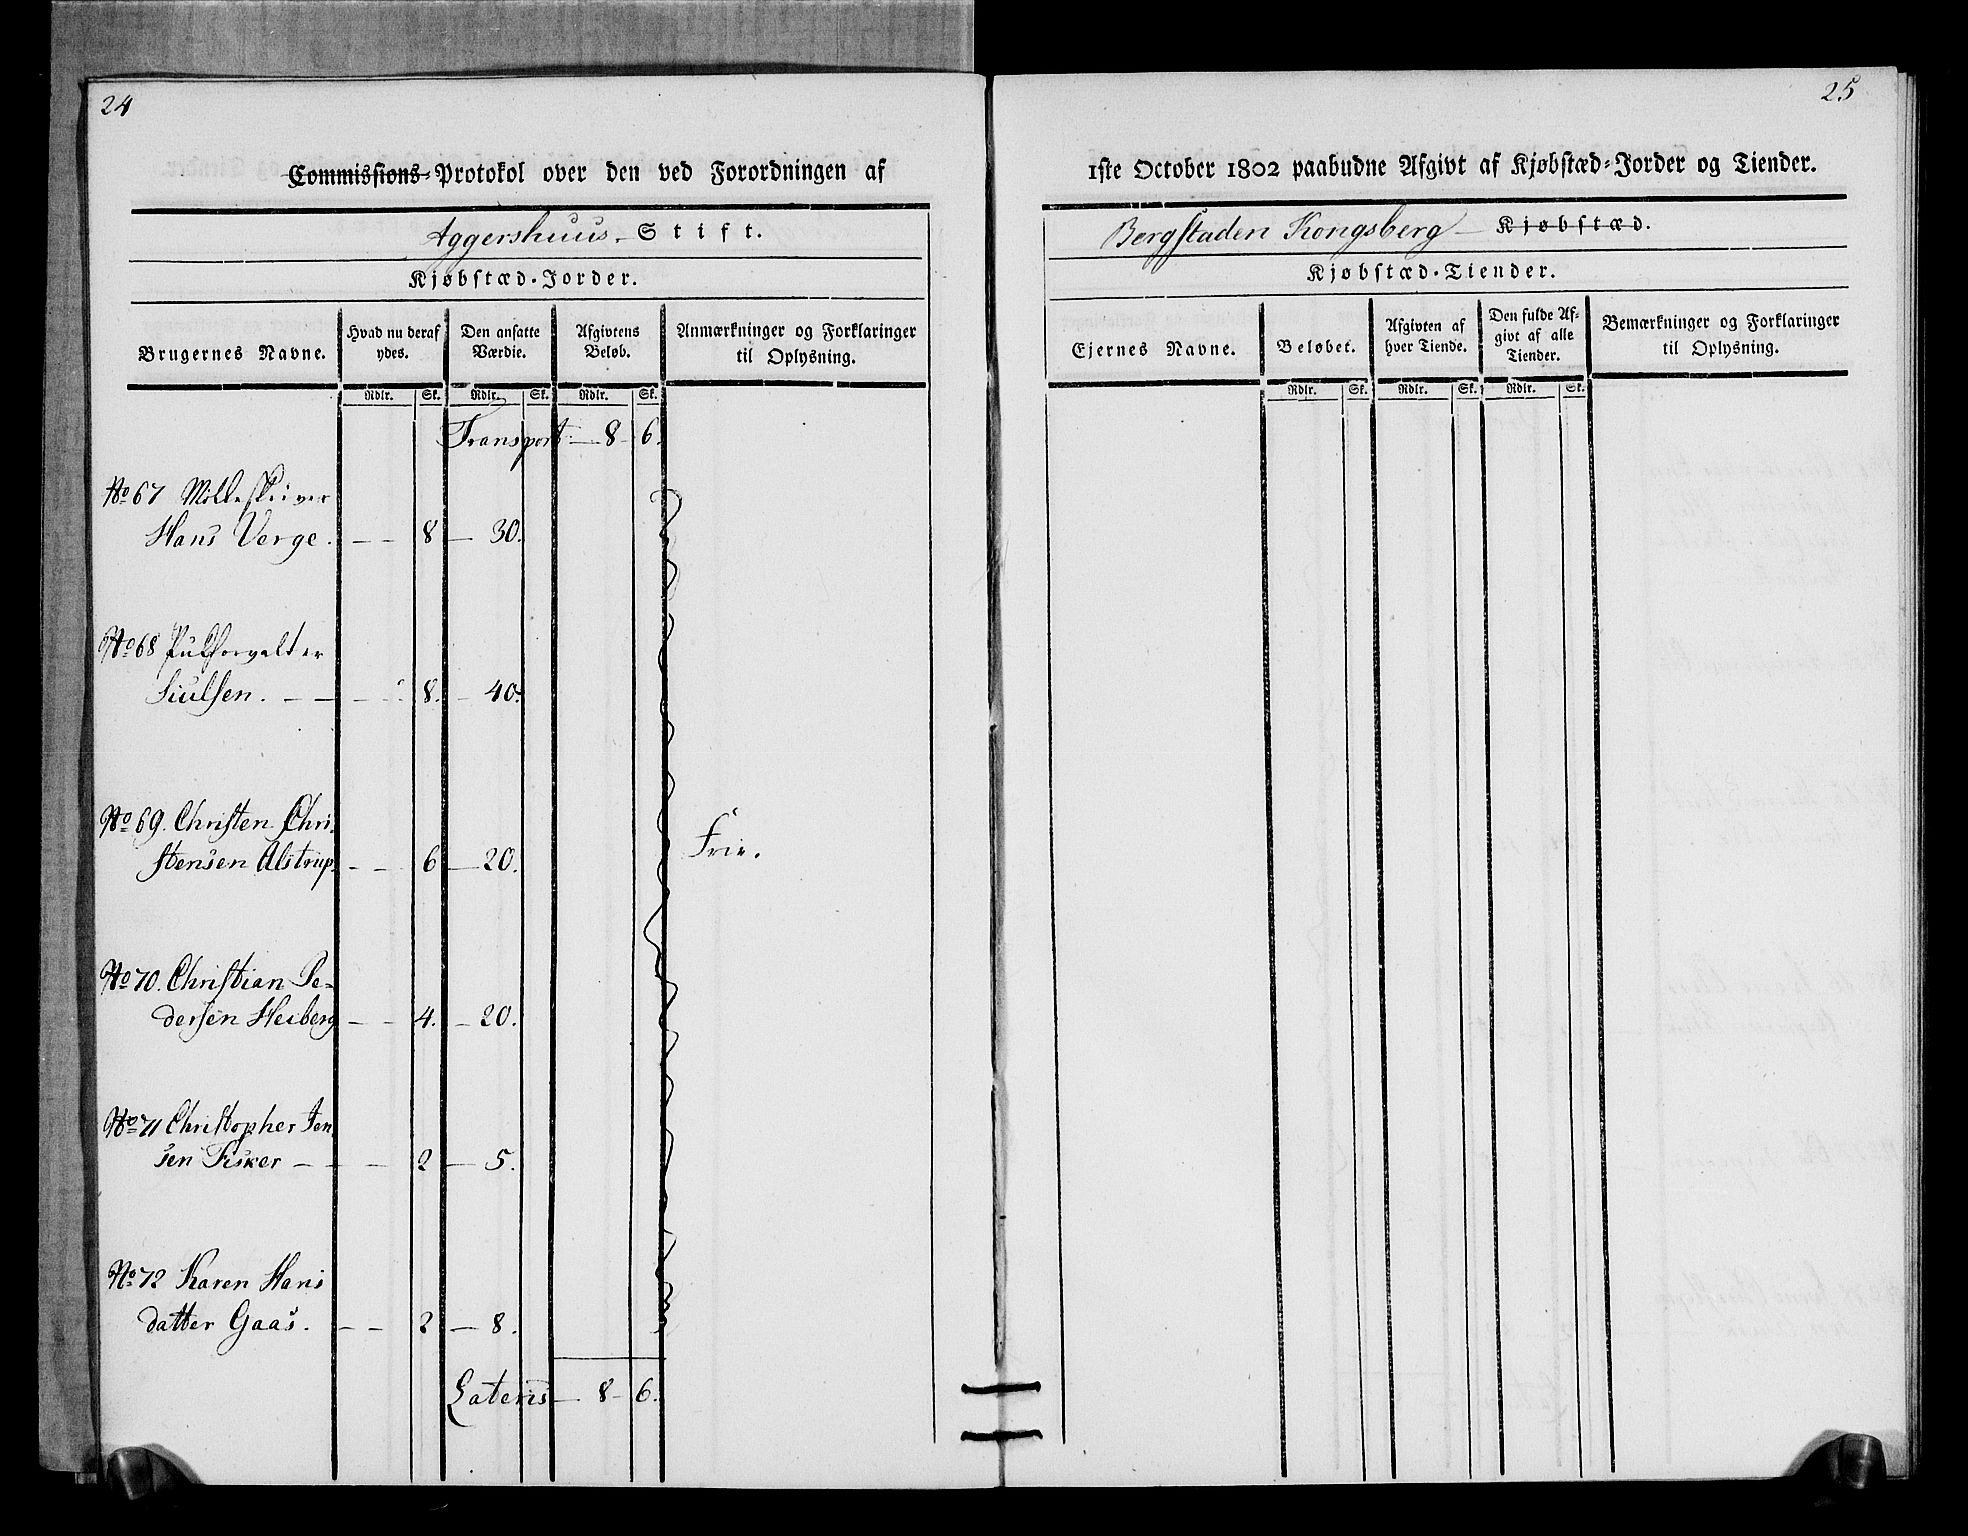 24
Commissions-Protokol over den ved Forordningen af
Aggershuus Stift.
Kjøbstæd-Jorder.
Brugernes Navne.
Hvad nu deraf ydes.
Den ansatte Værdie.
Afgivtens Beløb.
Anmærkninger og Forklaringer til Oplysning.
Rdlr. Sk. Rdlr. Sk. Rdlr. Sk.
Transport — 8 - 6.
No 67 Mølleskriver
Hans Verge. - - 8 — 30.
No 68
Siulsen. - - - - 8. - 40.
No 69. Christen Chri-
stensen Alstrup. - - 6 — 20. Frie.
No 70. Christian Pe-
dersen Heiberg - - 4. - 20.
No 71 Christopher Jen
sen Fisker - - - 2 — 5.
No 72 Karen Hans
datter Gaas. - - 2 — 8.
Lateris — 8 - 6.
25
1ste October 1802 paabudne Afgivt af Kjøbstæd-Jorder og Tiender.
Bergstaden Kongsberg — Kjøbstæd.
Kjøbstæd-Tiender.
Ejernes Navne.
Beløbet.
Afgivten af hver Tiende.
Den fulde Af-
givt af alle
Tiender.
Bemærkninger og Forklaringer til Oplysning.
Rdlr. Sk. Rdlr. Sk. Rdlr. Sk.